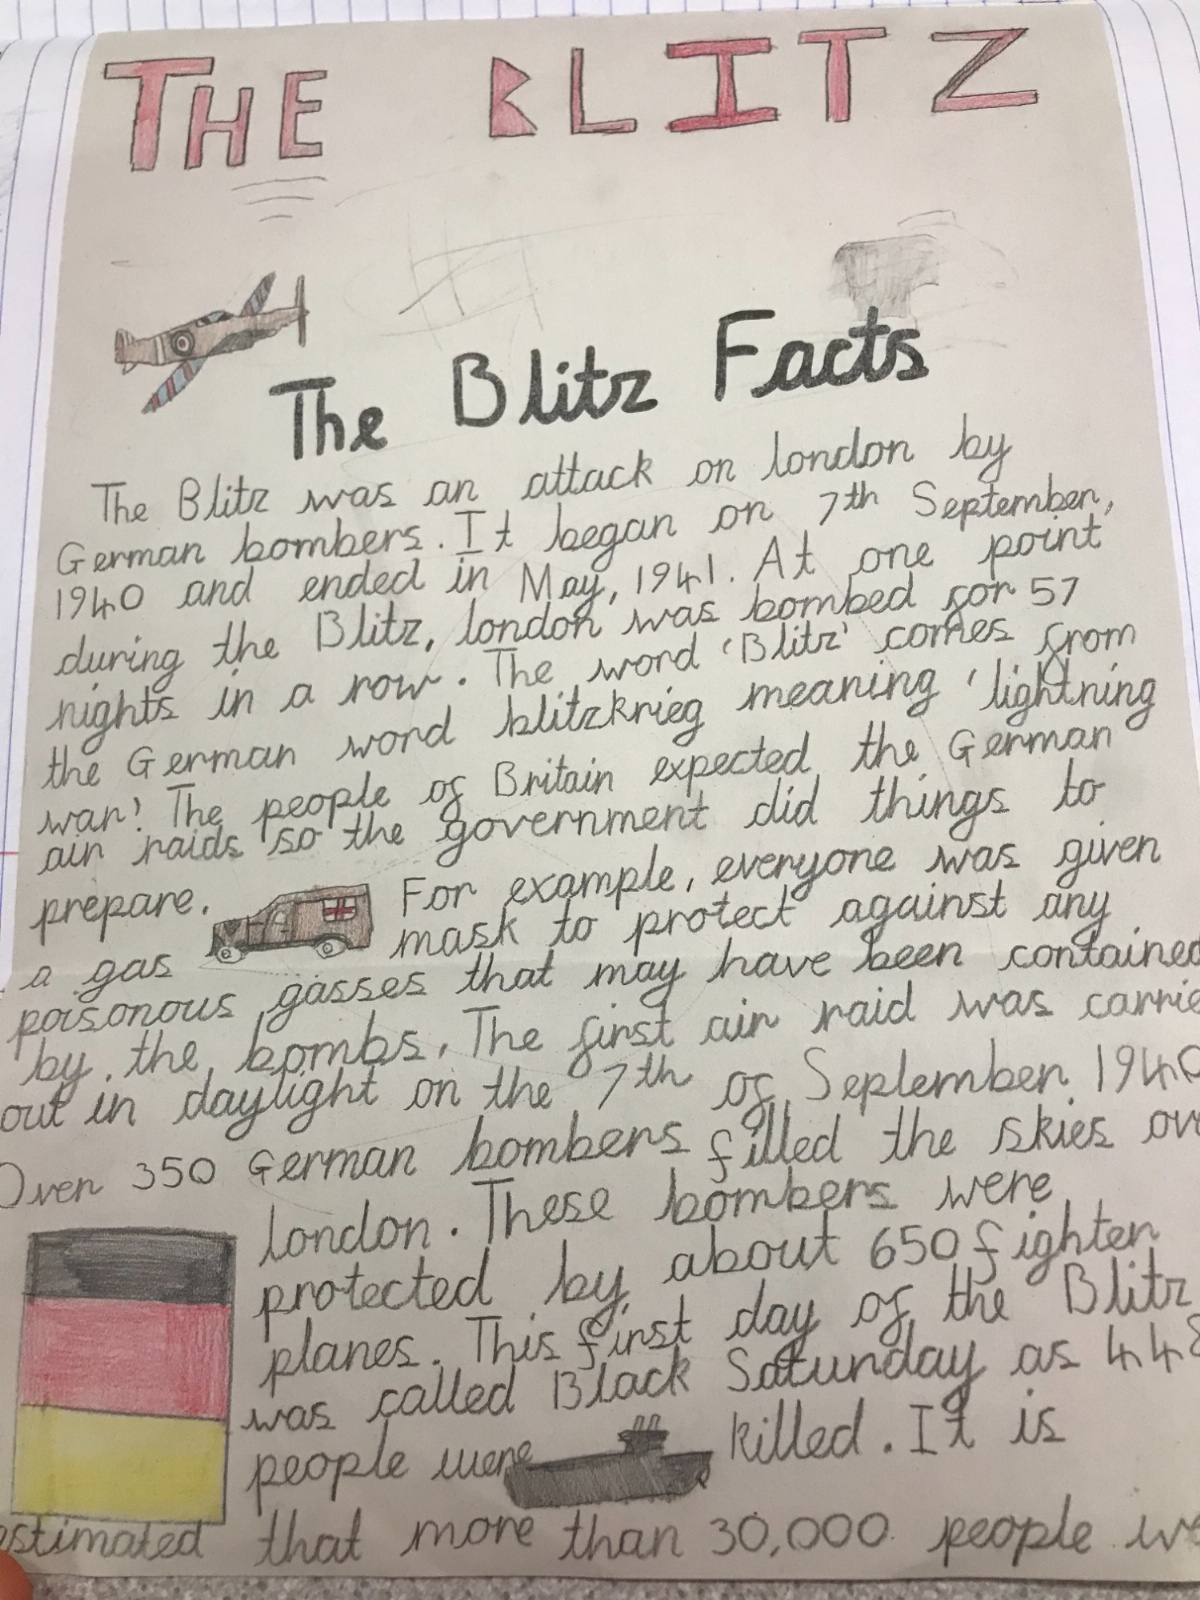 THE BLITZ
The Blitz Facts
The Blitz was an attack on london by
German bombers. It began on 7th September,
1940 and ended in May, 1941. At one point
during the Blitz, london was bombed for 57
nights in a row. The word 'Blitz' comes from
the German word blitzkrieg meaning 'lightning
war! The people of Britain expected the German
air raids so the government did things to
prepare. For example, everyone was given
a gas mask to protect against any
poisonous gasses that may have been contained
by the bombs. The first air raid was carrie
out in daylight on the 7th of September 1940
Over 350 German bombers filled the skies ove
london. These bombers were
protected by about 650 fighter
planes. This first day of the Blitz
was called Black Saturday as 448
people were killed. It is
estimated that more than 30,000 people we